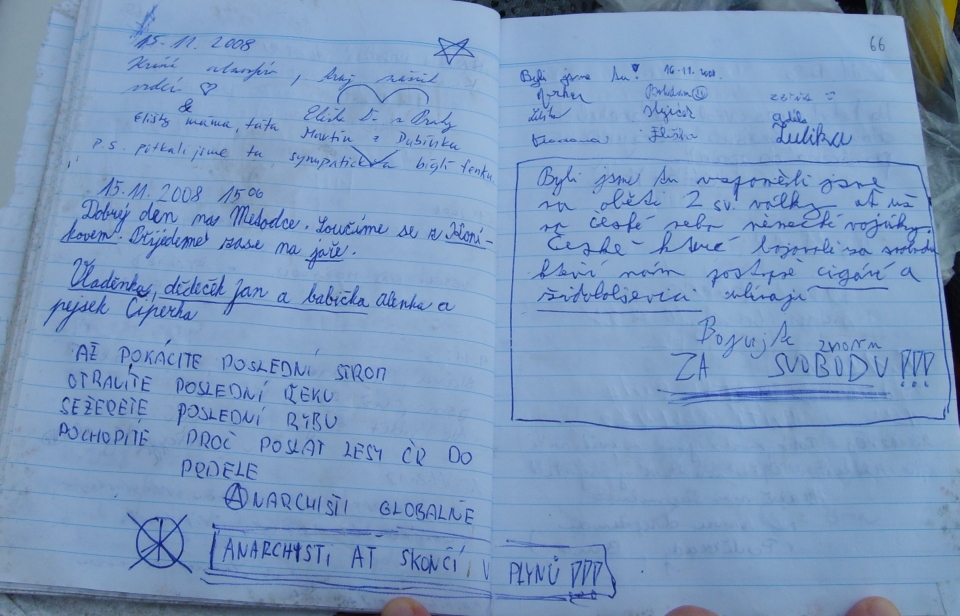 15.11.2008
Krásné , kraj
srdci ♡
& Eliška D. z Prahy
Elišky máma, táta Martin z Dubívka
P.S. potkali jsme tu sympatick bíglí fenku.
15.11.2008 15 06
Dobrý den nas Metodce. Loučíme se z Kloní-
kovem. Přijedeme zase na jaře.
Vladěnka, dědeček Jan a babička Alenka a
pejsek Čiperka
AŽ POKÁCÍTE POSLEDNÍ STROM
OTRAVÍTE POSLEDNÍ ŘEKU
SEŽERETE POSLEDNÍ RYBU
POCHOPÍTE PROČ POSLAT LESY ČR DO
PRDELE
ANARCHISTI GLOBALNĚ
ANARCHYSTI AŤ SKONČÍ V PLYNŮ !!!
66
Byli jsme tu! 16.11.2008.
Eliška
Zulika
Byli jsme tu vzpoměli jsme
na oběti 2 sv. války ať už
na české nebo německé vojáky.
České které bojovali za svobodu
kterí nám postupně cigáni a
židobolševici
Bojujte
znovu
ZA SVOBODU !!!